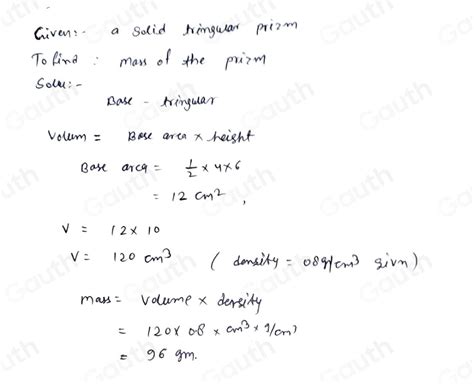 Given:- a solid tringular prizm
To find : mass of the prizm
Solu:-
Base - tringular
Volum = Base area × height
Base area = 1/2 × 4 × 6
= 12 cm2 ,
V = 12 × 10
V = 120 cm3 ( density = 08g/cm3 givn )
mass = volume × density
= 120 × 08 × cm3 × g/cm3
= 96 gm.